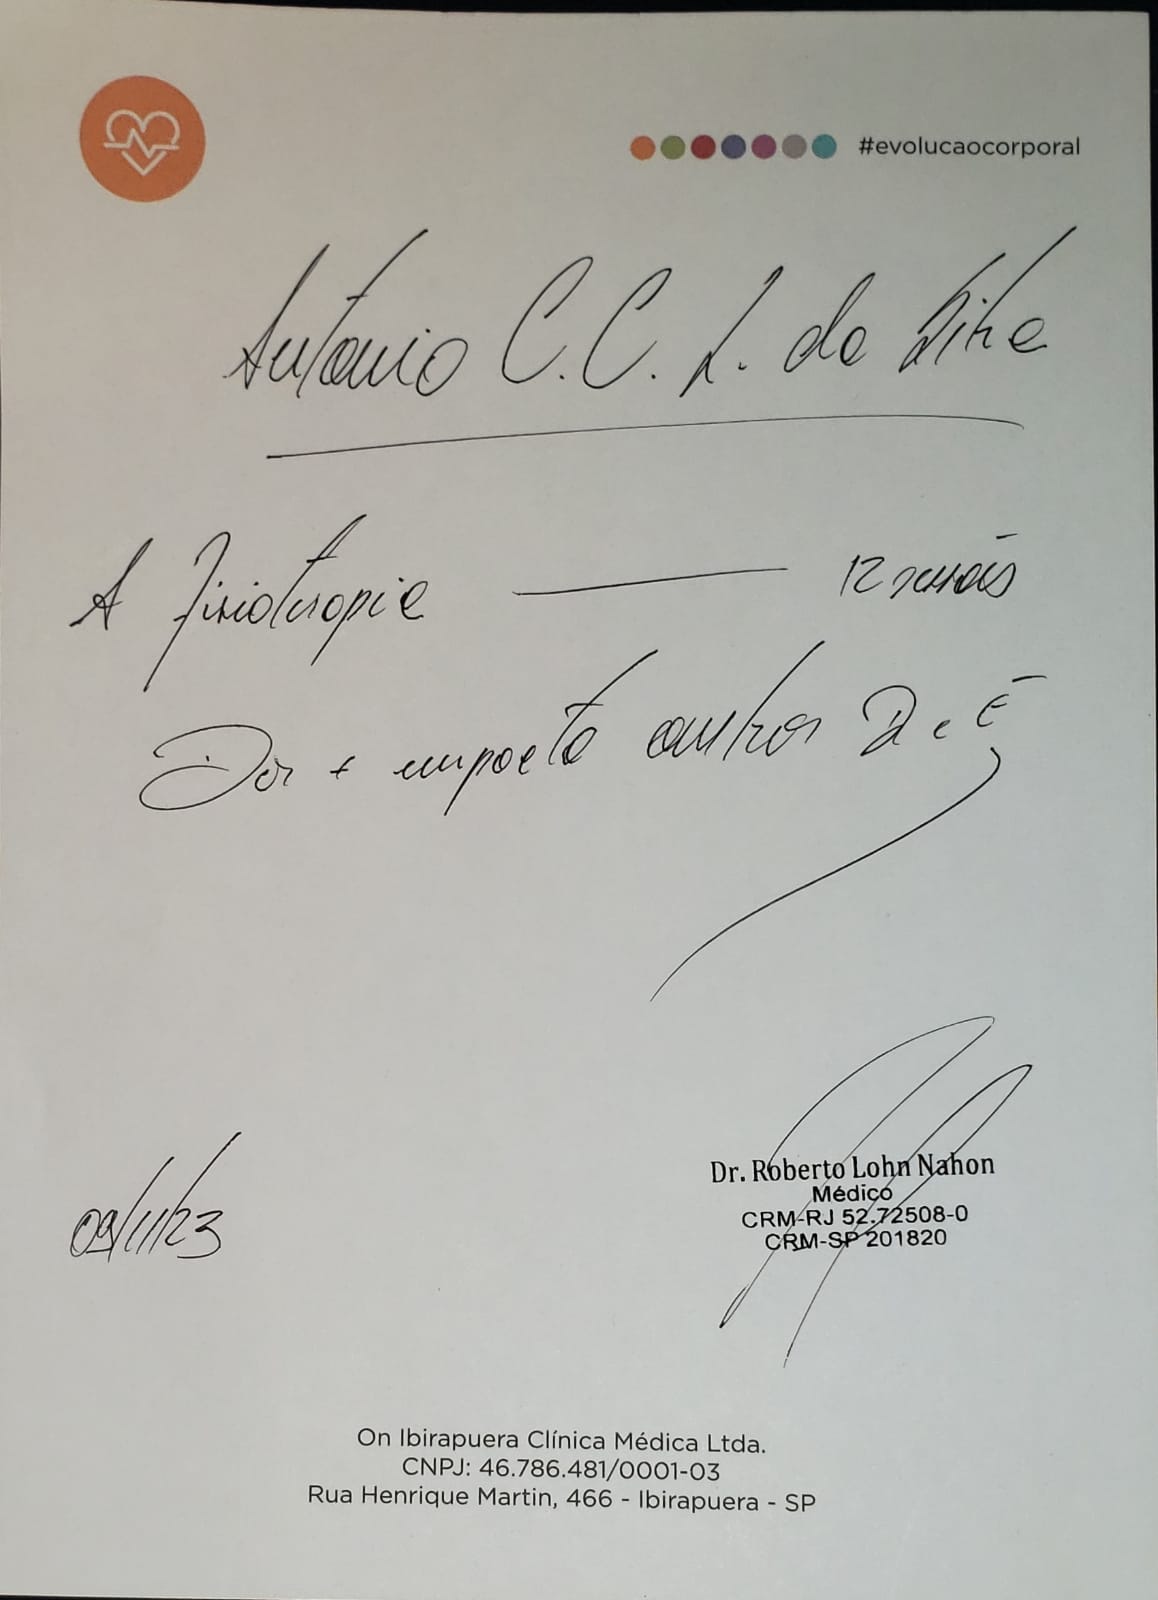 #evolucaocorporal
Antonio C. C. L. da
A Fisioterapia — 12 sessões
Dor + impacto ombros D e E
09/11/23
Dr. Roberto Lohn Nahon
Médico
CRM-RJ 52.72508-0
CRM-SP 201820
On Ibirapuera Clínica Médica Ltda.
CNPJ: 46.786.481/0001-03
Rua Henrique Martin, 466 - Ibirapuera - SP